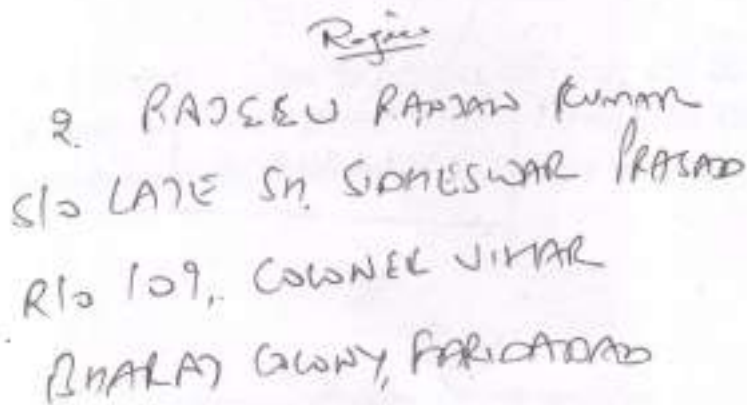 2. RAJEEV RANJAN KUMAR
S/o LATE SH. SIDHESWAR PRASAD
R/o 109, COLONEL VIHAR
BHARAT COLONY, FARIDABAD